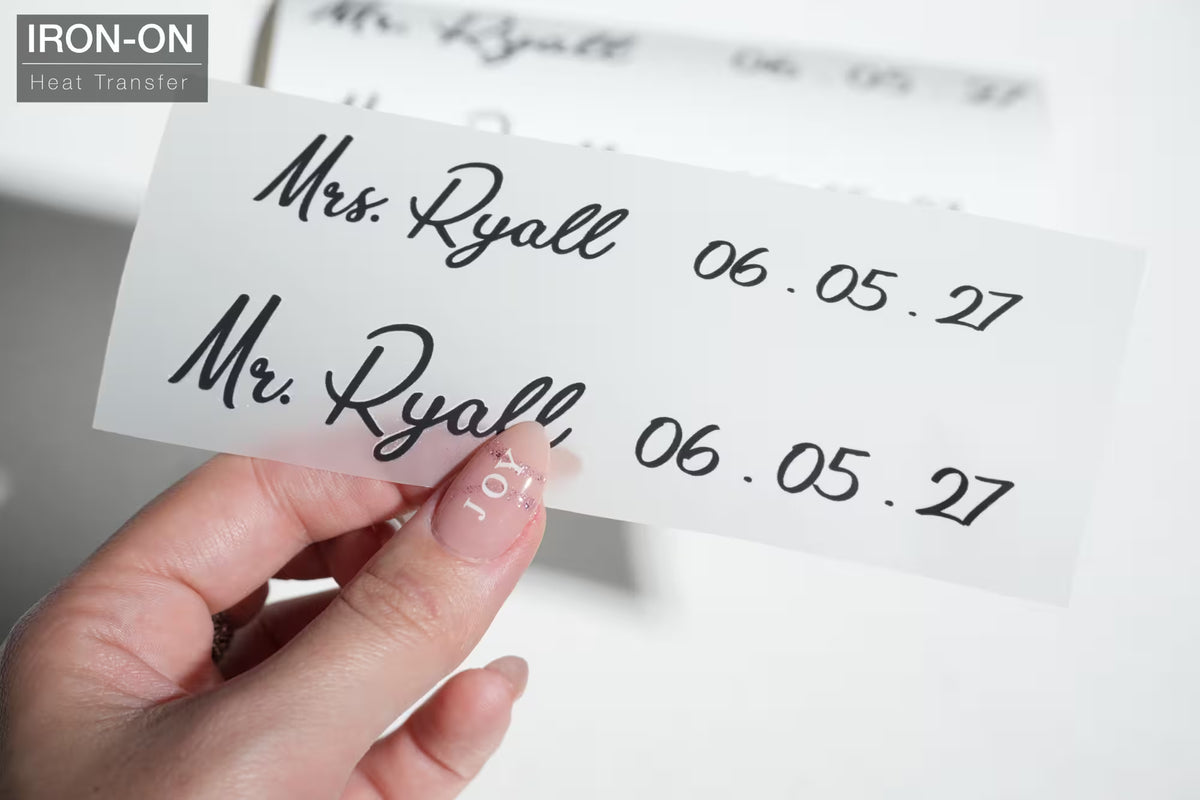 IRON-ON
Heat Transfer
Mr. Ryall 06 . 05 . 27
Mrs. Ryall 06 . 05 . 27
Mr. Ryall 06 . 05 . 27
JOY